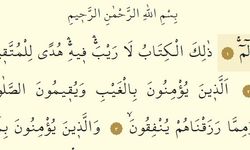 بِسْمِ اللهِ الرَّحْمٰنِ الرَّحِيمِ
لٓمٓ ۚ ١ ذٰلِكَ الْكِتَابُ لَا رَيْبَ ۛ فِيهِ ۛ هُدًى لِلْمُتَّقِي
اَلَّذِينَ يُؤْمِنُونَ بِالْغَيْبِ وَيُقِيمُونَ الصَّلٰو
مِمَّا رَزَقْنَاهُمْ يُنْفِقُونَ ۙ ٣ وَالَّذِينَ يُؤْمِنُونَ بِمَا